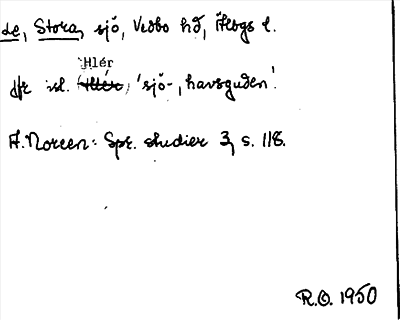 Le, Stora, sjö, Vedbo hd, Älvgs l.
Hlér
Jfr isl. Hlér, 'sjö-, havsguden'.
A. Noreen: Spr. studier 3, s. 118.
R.O. 1950